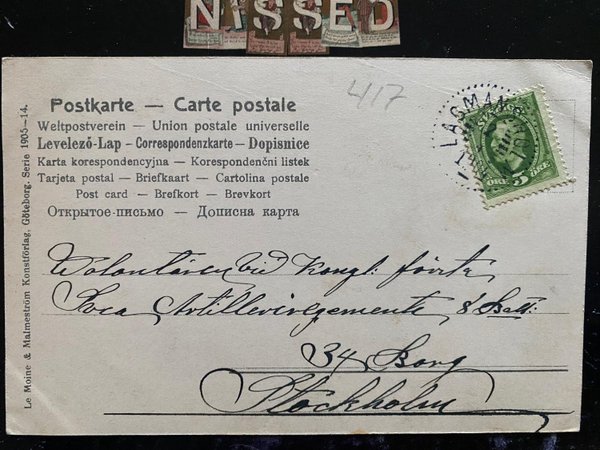 NISSED
417
Postkarte — Carte postale
Weltpostverein — Union postale universelle
Levelező-Lap — Correspondenzkarte — Dopisnice
Karta korespondencyjna — Korespondenční listek
Tarjeta postal — Briefkaart — Cartolina postale
Post card — Brefkort — Brevkort
Открытое-письмо — Дописна карта
LAGMAN
5
ÖRE
Volontären vid Kongl: första
Svea Artilleriregemente 8 Batt:
34 Borg
Stockholm
Le Moine & Malmeström Konstförlag, Göteborg. Serie 1905—14.